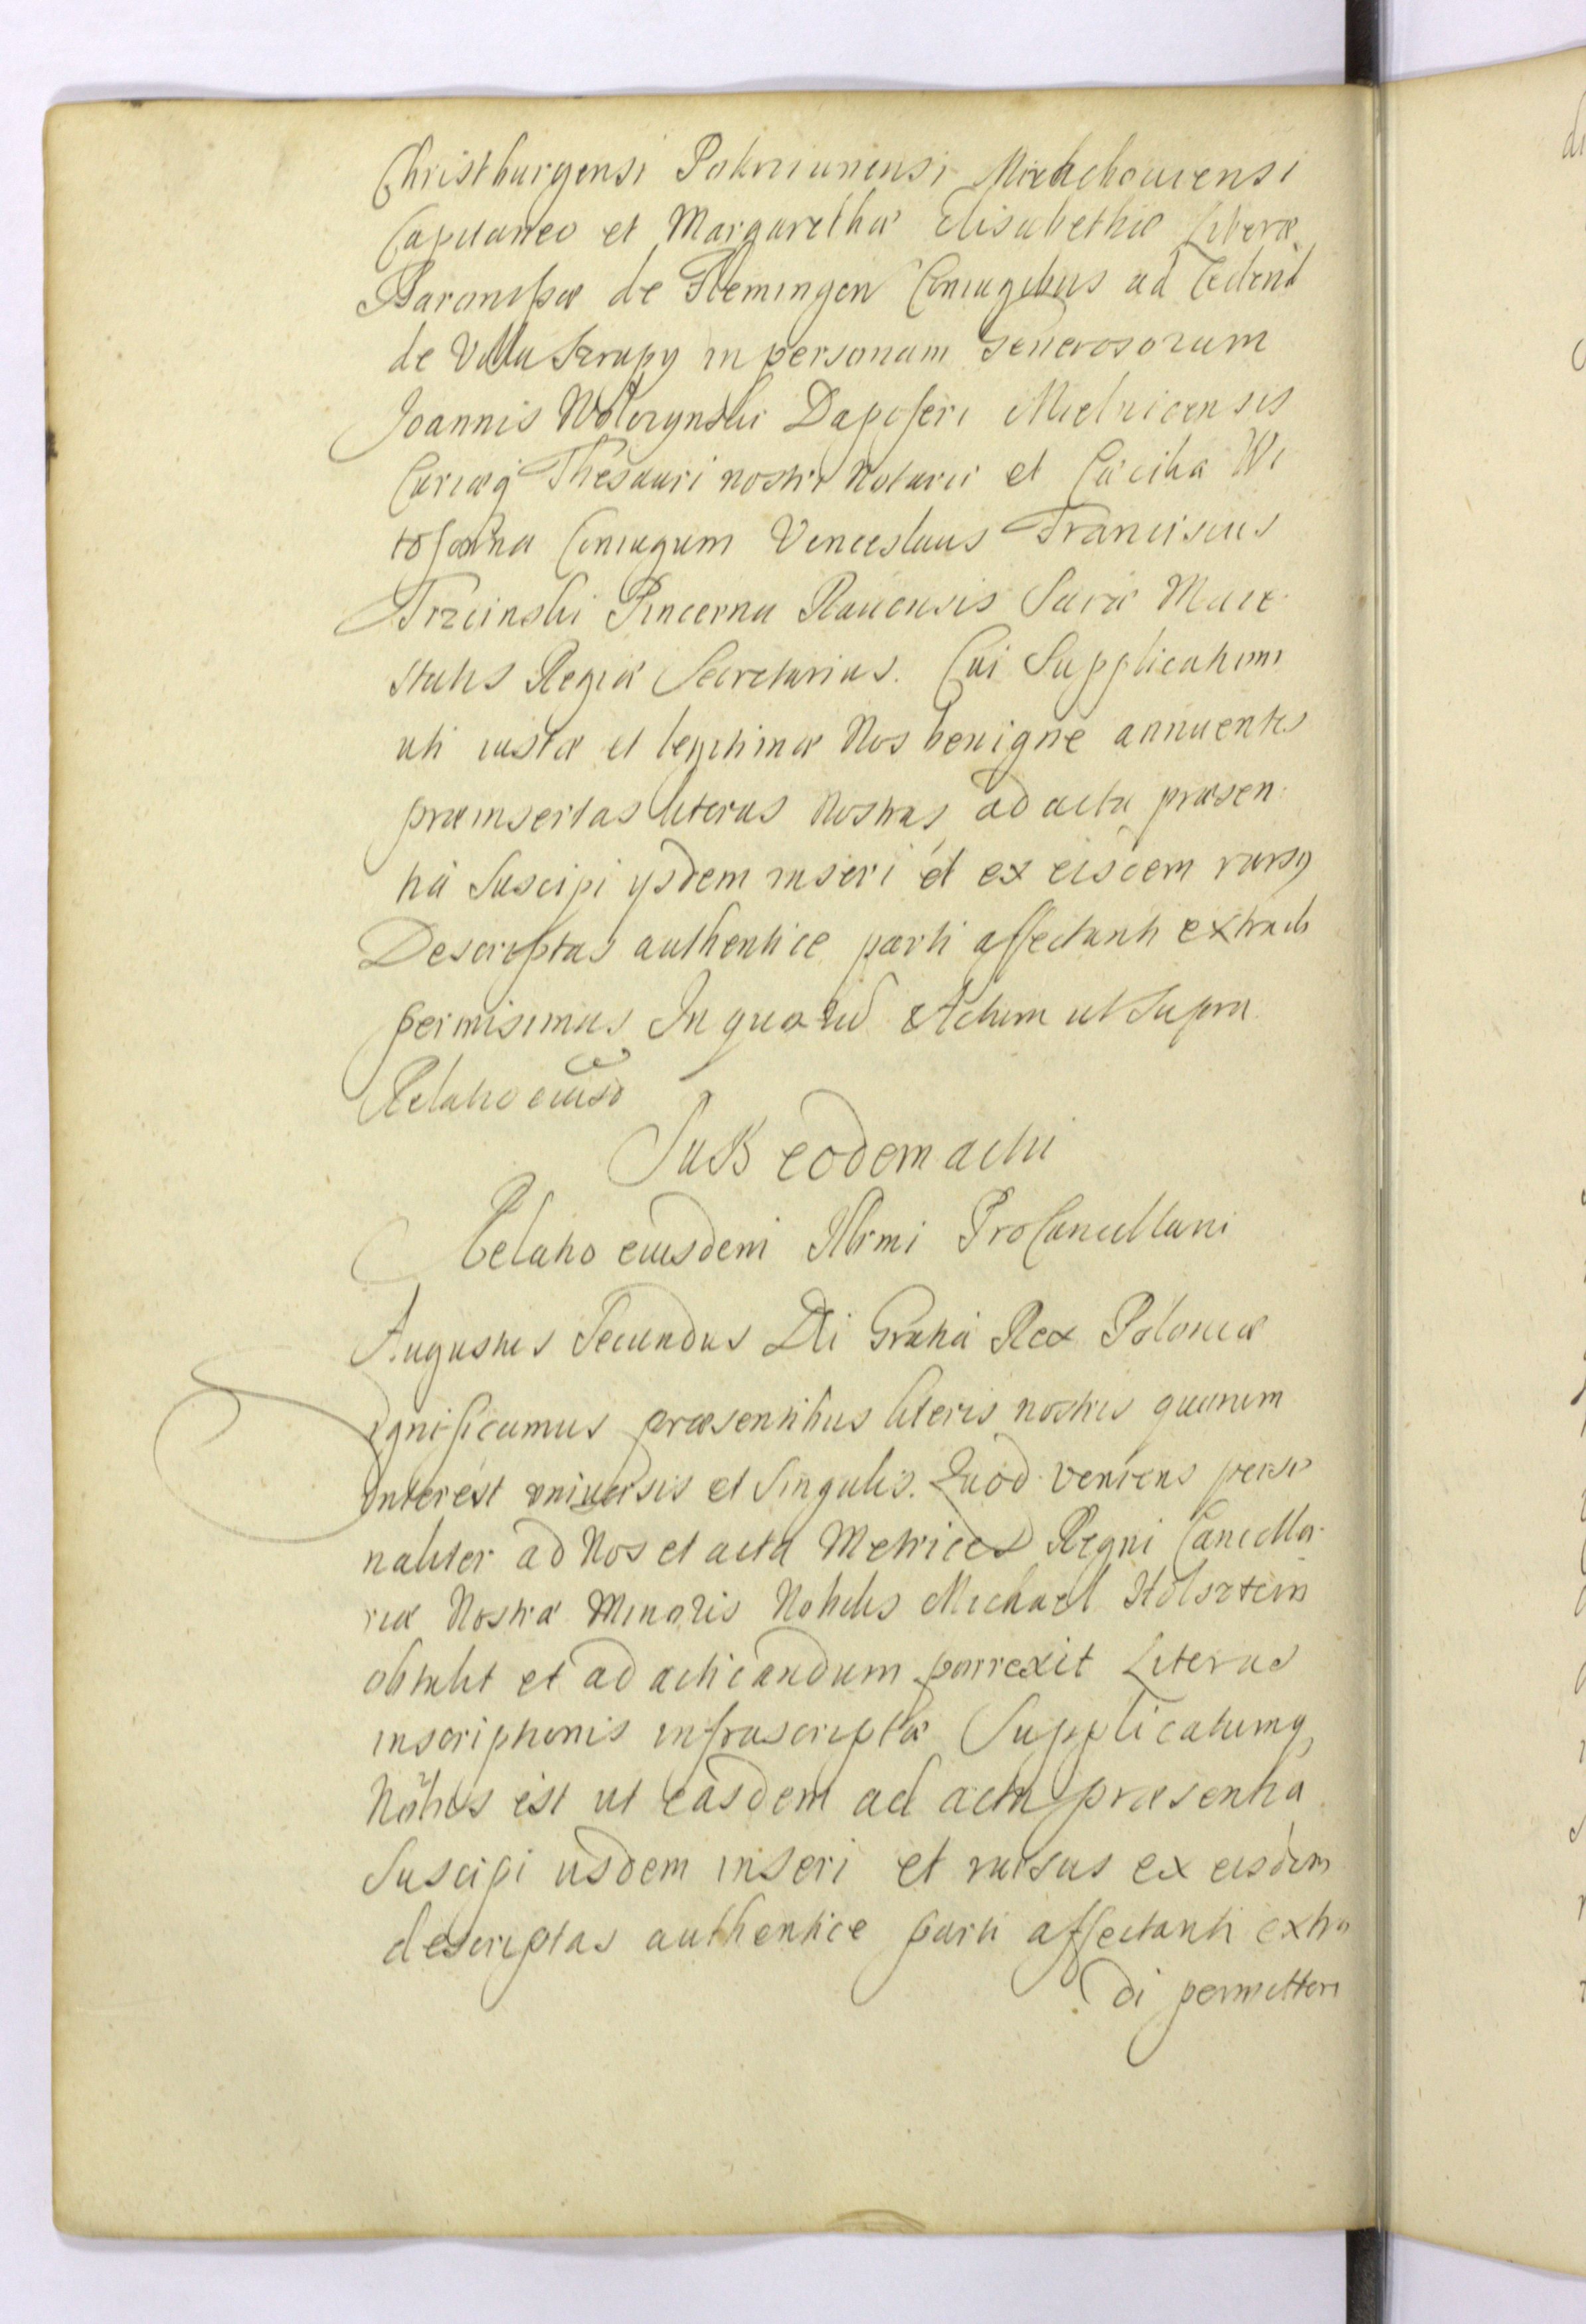 Christburgensi Miechchouiensi
Capitaneo et Margarethæ Elisabethæ Liberæ
Baronissæ de Flemingen Coniugibus ad Cedend
de Villa Szrapy in personam Generosorum
Joannis Wolczynski Dapiferi Mielnicensis
Curiæq Thesauri nostri Notarii et Cæcilia Wi
Coniugum Venceslaus Franciscus
Trzcinski Pincerna Rauensis Sacræ Maie
statis Regiæ Secretarius. Cui Supplicationi
uti iustæ et legitimæ Nos benigne annuentes
præinsertas literas Nostras ad acta præsen
tia Suscipi ysdem inseri et ex eisdem rursq
Descriptas authentice parti affectanti extradi
permisimus In quor. Actum ut Supra
Relatio eiusd
Sub eodem actu
Relatio eiusdem Illrmi ProCancellarii
Augustus Secundus Dei Gratia Rex Poloniæ
Significamus præsentibus literis nostris quorum
interest vniuersis et Singulis. Quod veniens perso
naliter ad Nos et acta Metrices Regni Cancella
riæ Nostræ Minoris Nobilis Michael Holsztein
obtulit et ad acticandum porrexit Literas
inscriptionis infrascriptæ Supplicatumq
Nobis est ut easdem ad acta præsentia
Suscipi iisdem inseri et rursus ex eisdem
descriptas authentice parti affectanti extra
di permitteri